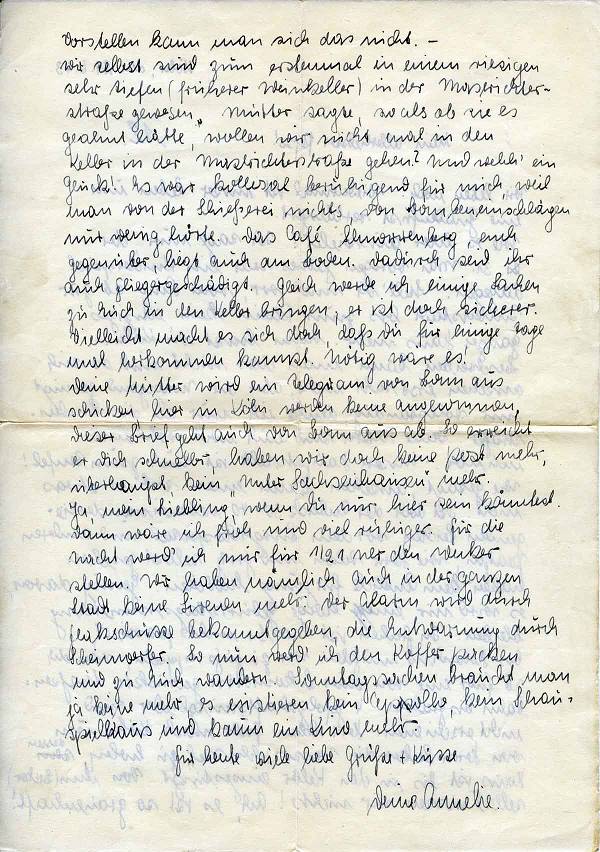 Vorstellen kann man sich das nicht. –
Wir selbst sind zum erstenmal in einem riesigen
sehr tiefen (früherer Weinkeller) in der Mastrichter-
straße gewesen. Mutter sagte, so als ob sie es
geahnt hätte, wollen wir nicht mal in den
Keller in der Mastrichterstraße gehen? Und welch' ein
Glück! Es war kollosal beruhigend für mich, weil
man von der Schießerei nichts, von Bombeneinschlägen
nur wenig hörte. Das Café Schmorrenberg, euch
gegenüber, liegt auch am Boden. Dadurch seid ihr
auch fliegergeschädigt. Gleich werde ich einige Sachen
zu Euch in den Keller bringen, er ist doch sicherer.
Vielleicht macht es sich doch, daß Du für einige Tage
mal herkommen kannst. Nötig wäre es!
Deine Mutter wird ein Telegram von Bonn aus
schicken hier in Köln werden keine angenommen,
dieser Brief geht auch von Bonn aus ab. So erreicht
er dich schneller. haben wir doch keine Post mehr,
überhaupt, kein „Unter Sachsenhausen" mehr.
Ja, mein Liebling, wenn Du nur hier sein könntest.
Dann wäre ich froh und viel ruhiger. Für die
Nacht werd' ich mir für 1/2 1 Uhr den Wecker
stellen. Wir haben nämlich auch in der ganzen
Stadt keine Sirenen mehr. Der Alarm wird durch
Flakschüsse bekanntgegeben, die Entwarnung durch
Scheinwerfer. So nun werd' ich den Koffer packen
und zu Euch wandern. Sonntagssachen braucht man
ja keine mehr, es existieren kein Appollo, kein Schau-
spielhaus und kaum ein Kino mehr.
Für heute viele liebe Grüße + Küsse
Deine Annelie.